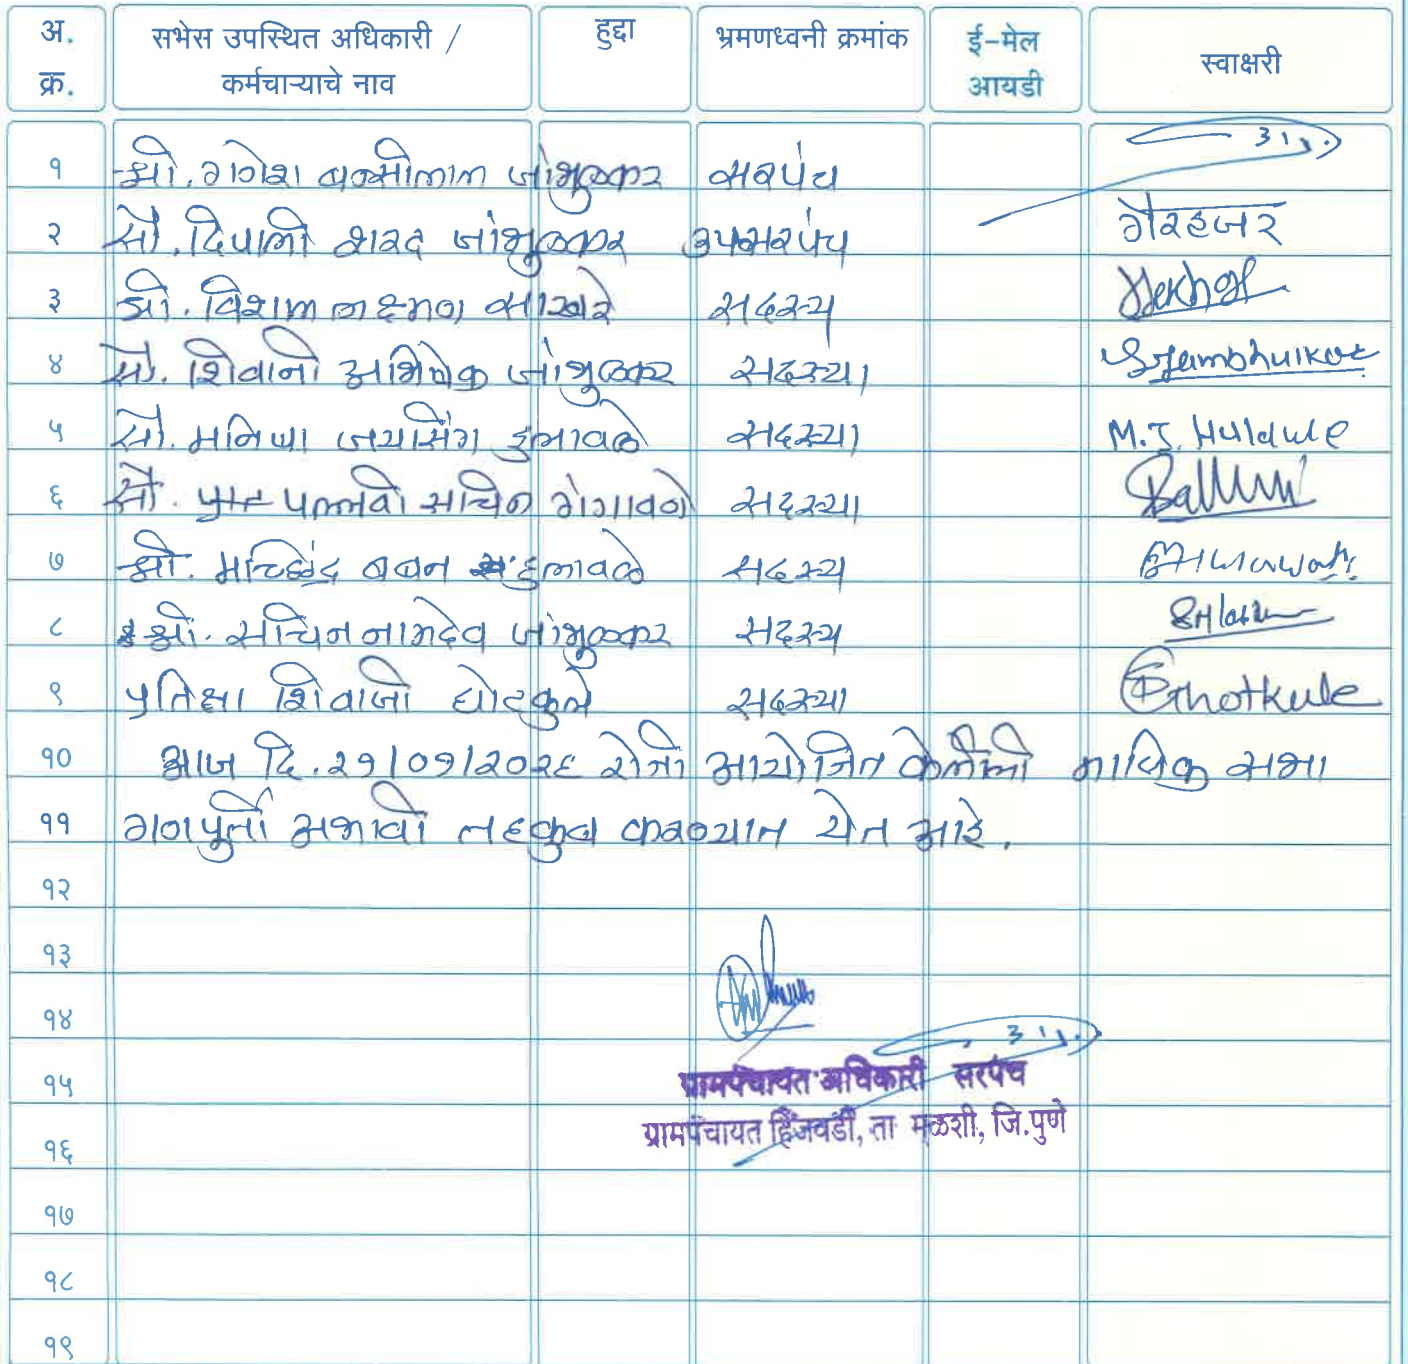 अ. क्र. सभेस उपस्थित अधिकारी / कर्मचाऱ्याचे नाव हुद्दा भ्रमणध्वनी क्रमांक ई-मेल आयडी स्वाक्षरी
१ श्री. गणेश बन्सीलाल जांभुळकर सरपंच
२ सौ. दिपाली शरद जांभुळकर उपसरपंच गैरहजर
३ श्री. विशाल लक्ष्मण साखरे सदस्य
४ सौ. शिवानी अभिषेक जांभुळकर सदस्या SJambhulkar
५ सौ. मनिषा जयसिंग हुलावळे सदस्या M.J. Hulawle
६ सौ. पल्लवी सचिन गंगावणे सदस्या
७ श्री. मच्छिंद्र बबन हुलावळे सदस्य
८ श्री. सचिन नामदेव जांभुळकर सदस्य
९ प्रतिक्षा शिवाजी घोटकुले सदस्या Ghotkule
१० आज दि. २१/०१/२०२६ रोजी आयोजित केलेली मासिक सभा
११ गणपुर्ती अभावी तहकुब करण्यात येत आहे.
१२
१३
१४
१५ ग्रामपंचायत अधिकारी सरपंच
१६ ग्रामपंचायत हिंजवडी, ता मुळशी, जि.पुणे
१७
१८
१९